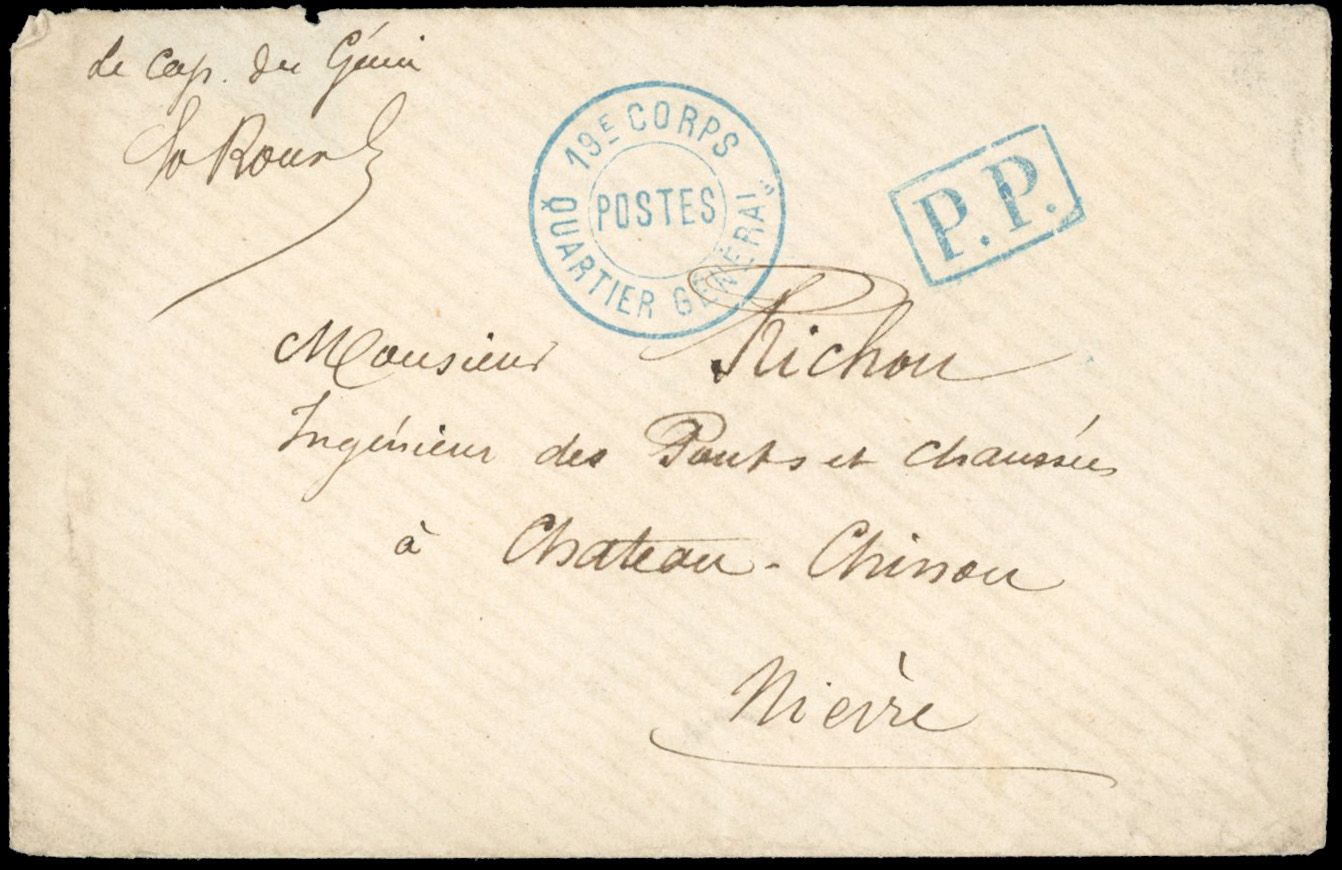 Le cap. du Génie
19E CORPS
POSTES
QUARTIER GÉNÉRAL
P.P.
Monsieur Richou
Ingénieur des Ponts et chaussées
à Chateau-Chinon
Nièvre